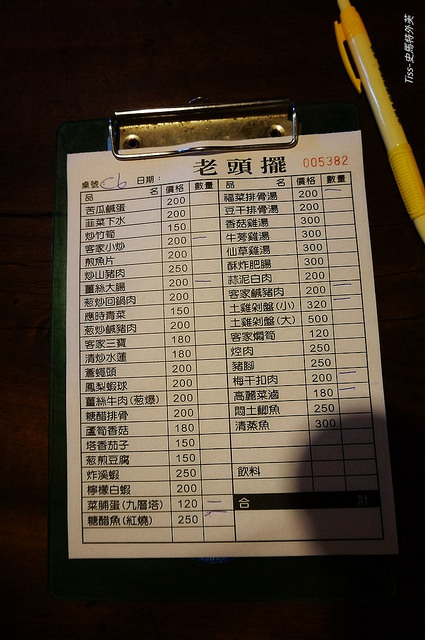 Tiss-史馬特外芙
老頭擺 005382
桌號 C6 日期：
品名 價格 數量 品名 價格 數量
苦瓜鹹蛋 200 福菜排骨湯 200
韮菜下水 200 豆干排骨湯 200
炒竹筍 150 香菇雞湯 300
客家小炒 200 牛蒡雞湯 300
煎魚片 200 仙草雞湯 300
炒山豬肉 250 酥炸肥腸 300
薑絲大腸 200 蒜泥白肉 200
葱炒回鍋肉 200 客家鹹豬肉 200
應時青菜 150 土雞剁盤(小) 320
葱炒鹹豬肉 200 土雞剁盤(大) 500
客家三寶 180 客家燜筍 120
清炒水蓮 180 焢肉 250
蒼蠅頭 200 豬腳 250
鳳梨蝦球 200 梅干扣肉 200
薑絲牛肉(葱爆) 200 高麗菜滷 180
糖醋排骨 200 悶土鯽魚 250
蘆筍香菇 180 清蒸魚 300
塔香茄子 150
葱煎豆腐 150
炸溪蝦 250 飲料
檸檬白蝦 200
菜脯蛋(九層塔) 120 合計
糖醋魚(紅燒) 250